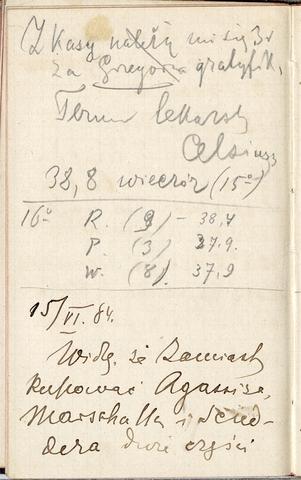 Z Kasy należą mi się 3r
za Grzegorza gratyfik.
Term lekarski
Celsiusz
38,8 wieczór (15º)
16º R. (9) - 38,4
P. (3) 37.9.
W. (8). 37,9
15/VI. 84.
Widzę, że zamiast
kupować Agassisa,
Marschalla i Scud-
dera dwie części